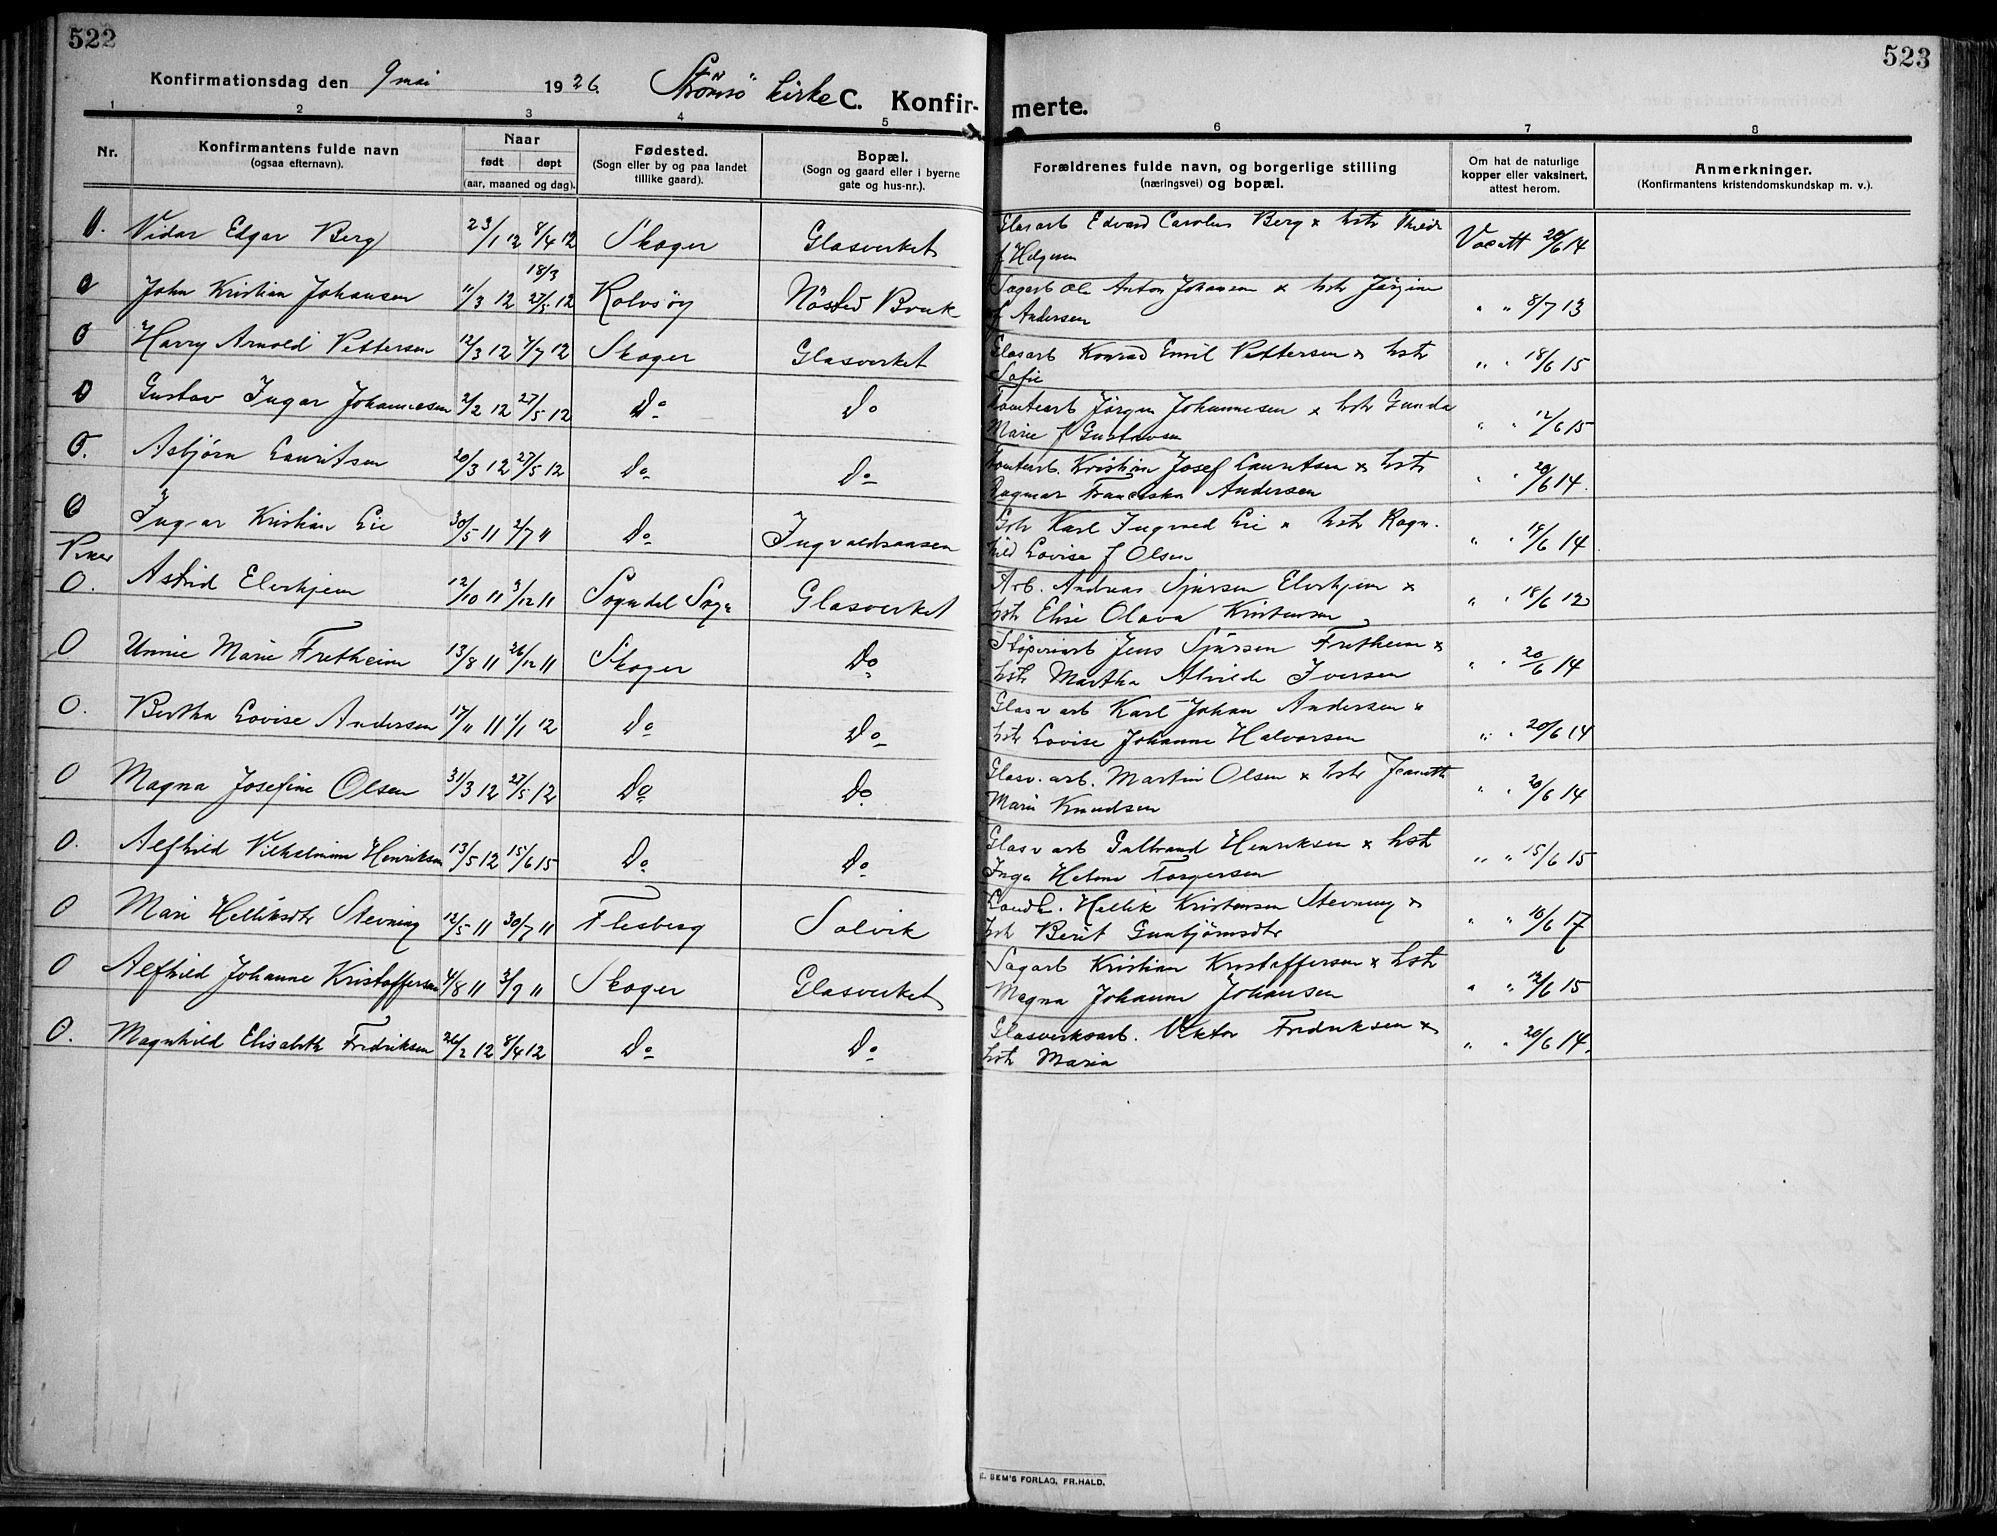 522
523
Konfirmationsdag den 9 mai 1926. Strömsö kirke C. Konfir-merte.
1 2 3 4 5 6 7 8
Nr.
Konfirmantens fulde navn
(ogsaa efternavn).
Naar
født døpt
(aar, maaned og dag).
Fødested.
(Sogn eller by og paa landet
tillike gaard).
Bopæl.
(Sogn og gaard eller i byerne
gate og hus-nr.).
Forældrenes fulde navn, og borgerlige stilling
(næringsvei) og bopæl.
Om hat de naturlige
kopper eller vaksinert,
attest herom.
Anmerkninger.
(Konfirmantens kristendomskundskap m. v.).
Vidar Edgar Berg 23/1 12 8/4 12 Skoger Glasverket Glasarb Edvard Carolus Berg x hstr
f Helgesen Vacatt 20/6 14
18/3
John Kristian Johansen 11/3 12 27/5 12 Rolvsøy Nøsted Bruk Sagarb Ole Anton Johansen x hstr Jørgine
f Andersen " " 8/7 13
Harry Arnold Pettersen 12/3 12 7/7 12 Skoger Glasverket Glasarb Konrad Emil Pettersen x hstr
Sofie " " 18/6 15
Gustav Ingar Johannesen 2/2 12 27/5 12 Do Do Tomtearb Jørgen Johannesen x hstr Gunda
Marie f Gustavsen " " 12/6 15
Asbjørn Lauritsen 20/3 12 27/5 12 Do Do Tomtearb. Kristian Josef Lauritsen x hstr
Dagmar Franciska Andersen " " 20/6 14.
Ingvar Kristian Lie 30/5 11 2/7 11 Do Ingvaldsaasen Karl Ingvard Lie x hstr Ragn-
hild Lovise f Olsen " " 19/6 14
Piker
O. Astrid Elverhjem 12/10 11 3/12 11 Sogndal Sogn Glasverket Arb. Andreas Sjursen Elverhjem x
hstr Elise Olava Kristensen " " 18/6 12
O. Unnie Marie Fretheim 13/8 11 26/12 11 Skoger Do Støperiarb Jens Sjursen Fretheim x
hstr Martha Alvilde Iversen " " 20/6 14
O. Bertha Lovise Andersen 17/11 11 1/1 12 Do Do Glasv arb Karl Johan Andersen x
hstr Lovise Johanne Halvorsen " " 20/6 14
O Magna Josefine Olsen 31/3 12 27/5 12 Do Do Glasv. arb. Martin Olsen x hstr Jeanette
Marie Knudsen " " 20/6 14
O. Alfhild Vilhelmine Henriksen 13/5 12 15/6 15 Do Do Glasv arb Gulbrand Henriksen x hstr
Inga Helene Torgersen " " 15/6 15
O Mari Helliksdtr Stevning 12/5 11 30/7 11 Flesberg Solvik Landb. Hellik Kristensen Stevning x
hstr Berit Gunbjørnsdtr " " 16/6 17
O Alfhild Johanne Kristoffersen 4/8 11 3/9 11 Skoger Glasverket Sagarb Kristian Kristoffersen x hstr
Magna Johanne Johansen " " 12/6 15
O. Magnhild Elisabeth Fredriksen 26/2 12 8/4 12 Do Do Glasverksarb. Viktor Fredriksen x
hstr Maria " " 20/6 14.
E. SEM'S FORLAG, FR.HALD.